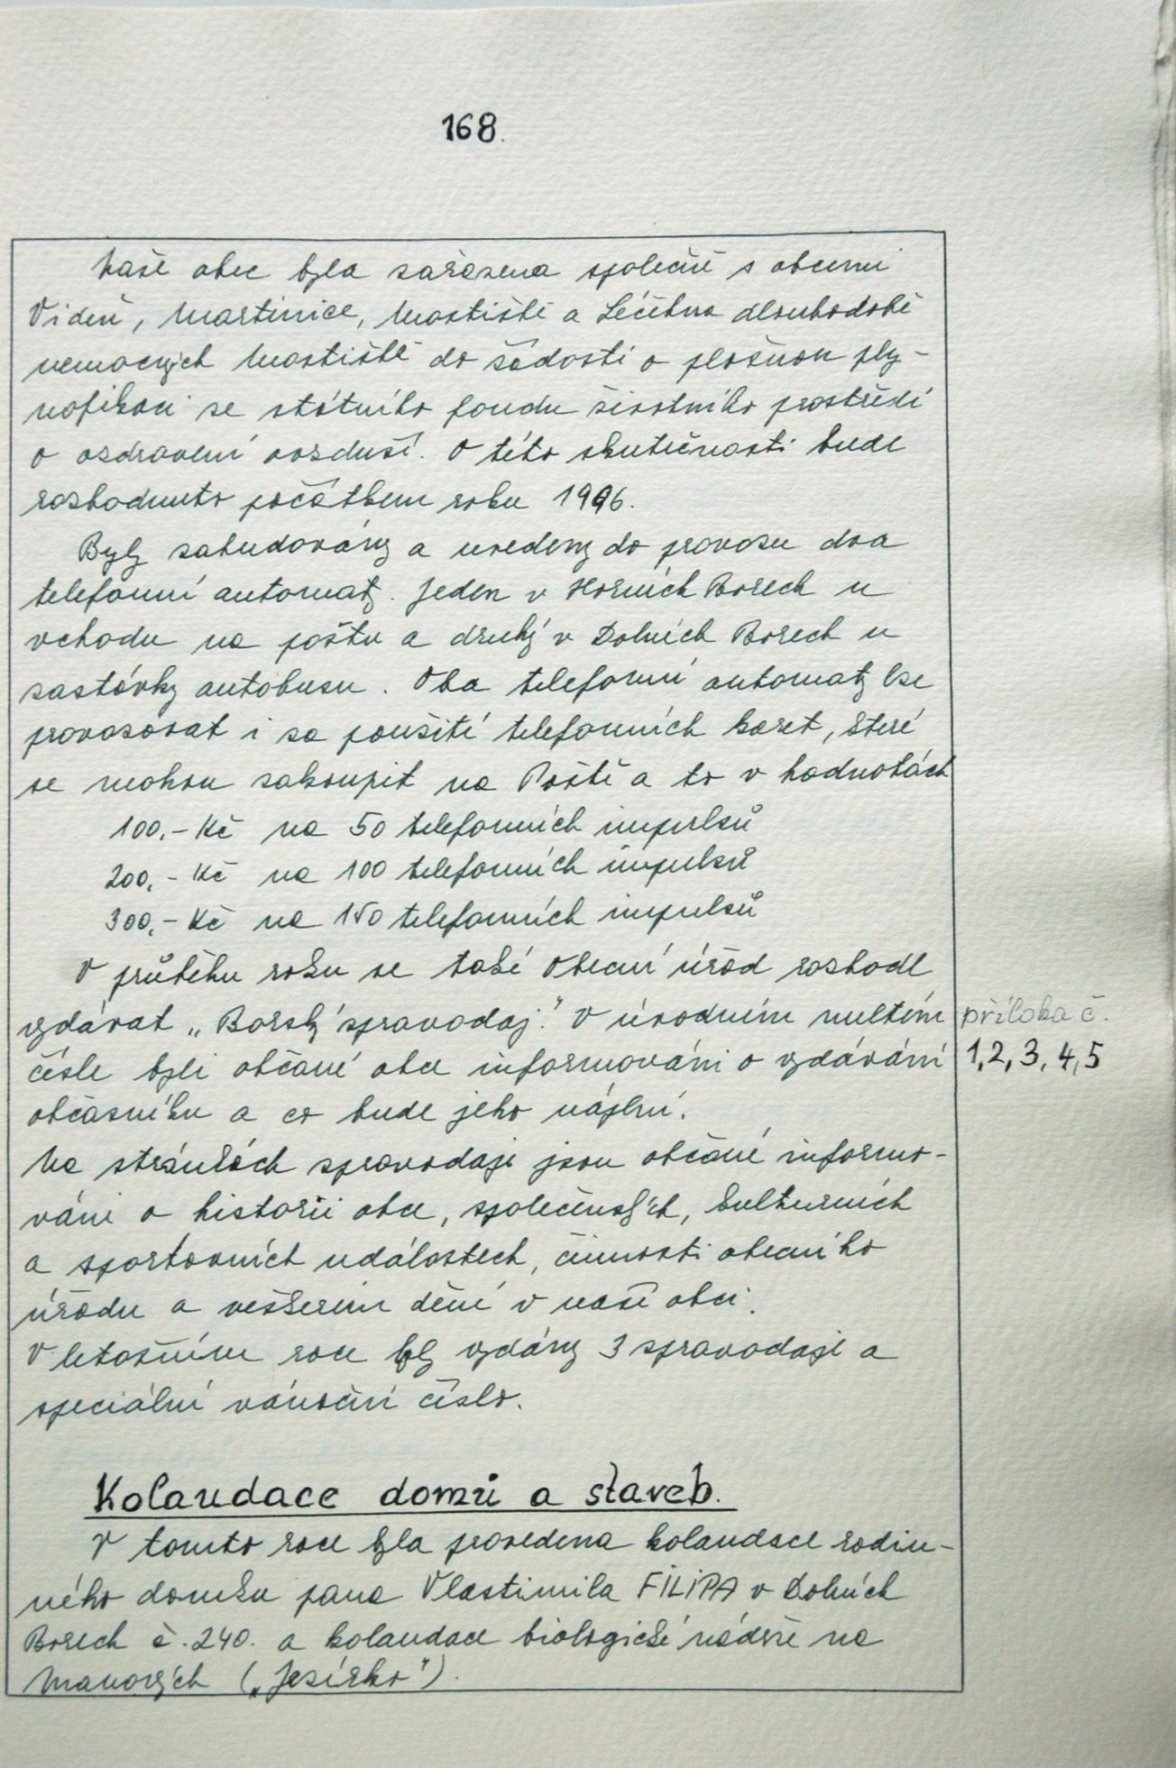 168.
Naše obec byla zařazena společně s obcemi
Vídeň, Martinice, Mostiště a Léčebna dlouhodobě
nemocných Mostiště do žádosti o plošnou ply-
nofikaci ze státního fondu životního prostředí
o ozdravení ovzduší. O této skutečnosti bude
rozhodnuto počátkem roku 1996.
Byly zabudovány a uvedeny do provozu dva
telefonní automaty. Jeden v Horních Borech u
vchodu na poštu a druhý v Dolních Borech u
zastávky autobusu. Oba telefonní automaty lze
provozovat i za použití telefonních karet, které
se mohou zakoupit na Poště a to v hodnotách
100,- Kč na 50 telefonních impulsů
200,- Kč na 100 telefonních impulsů
300,- Kč na 150 telefonních impulsů
V průběhu roku se také Obecní úřad rozhodl
vydávat „Borský zpravodaj." V úvodním nultém
příloha č.
čísle byli občané obce informováni o vydávání
1,2,3,4,5
občasníku a co bude jeho náplní.
Na stránkách zpravodaje jsou občané informo-
váni o historii obce, společenských, kulturních
a sportovních událostech, činnosti obecního
úřadu a veškerém dění v naší obci.
V letošním roce byly vydány 3 zpravodaje a
speciální vánoční číslo.
Kolaudace domů a staveb.
V tomto roce byla provedena kolaudace rodin-
ného domku pana Vlastimila FILIPA v Dolních
Borech č. 240. a kolaudace biologické nádrže na
Manových („Jezírko").